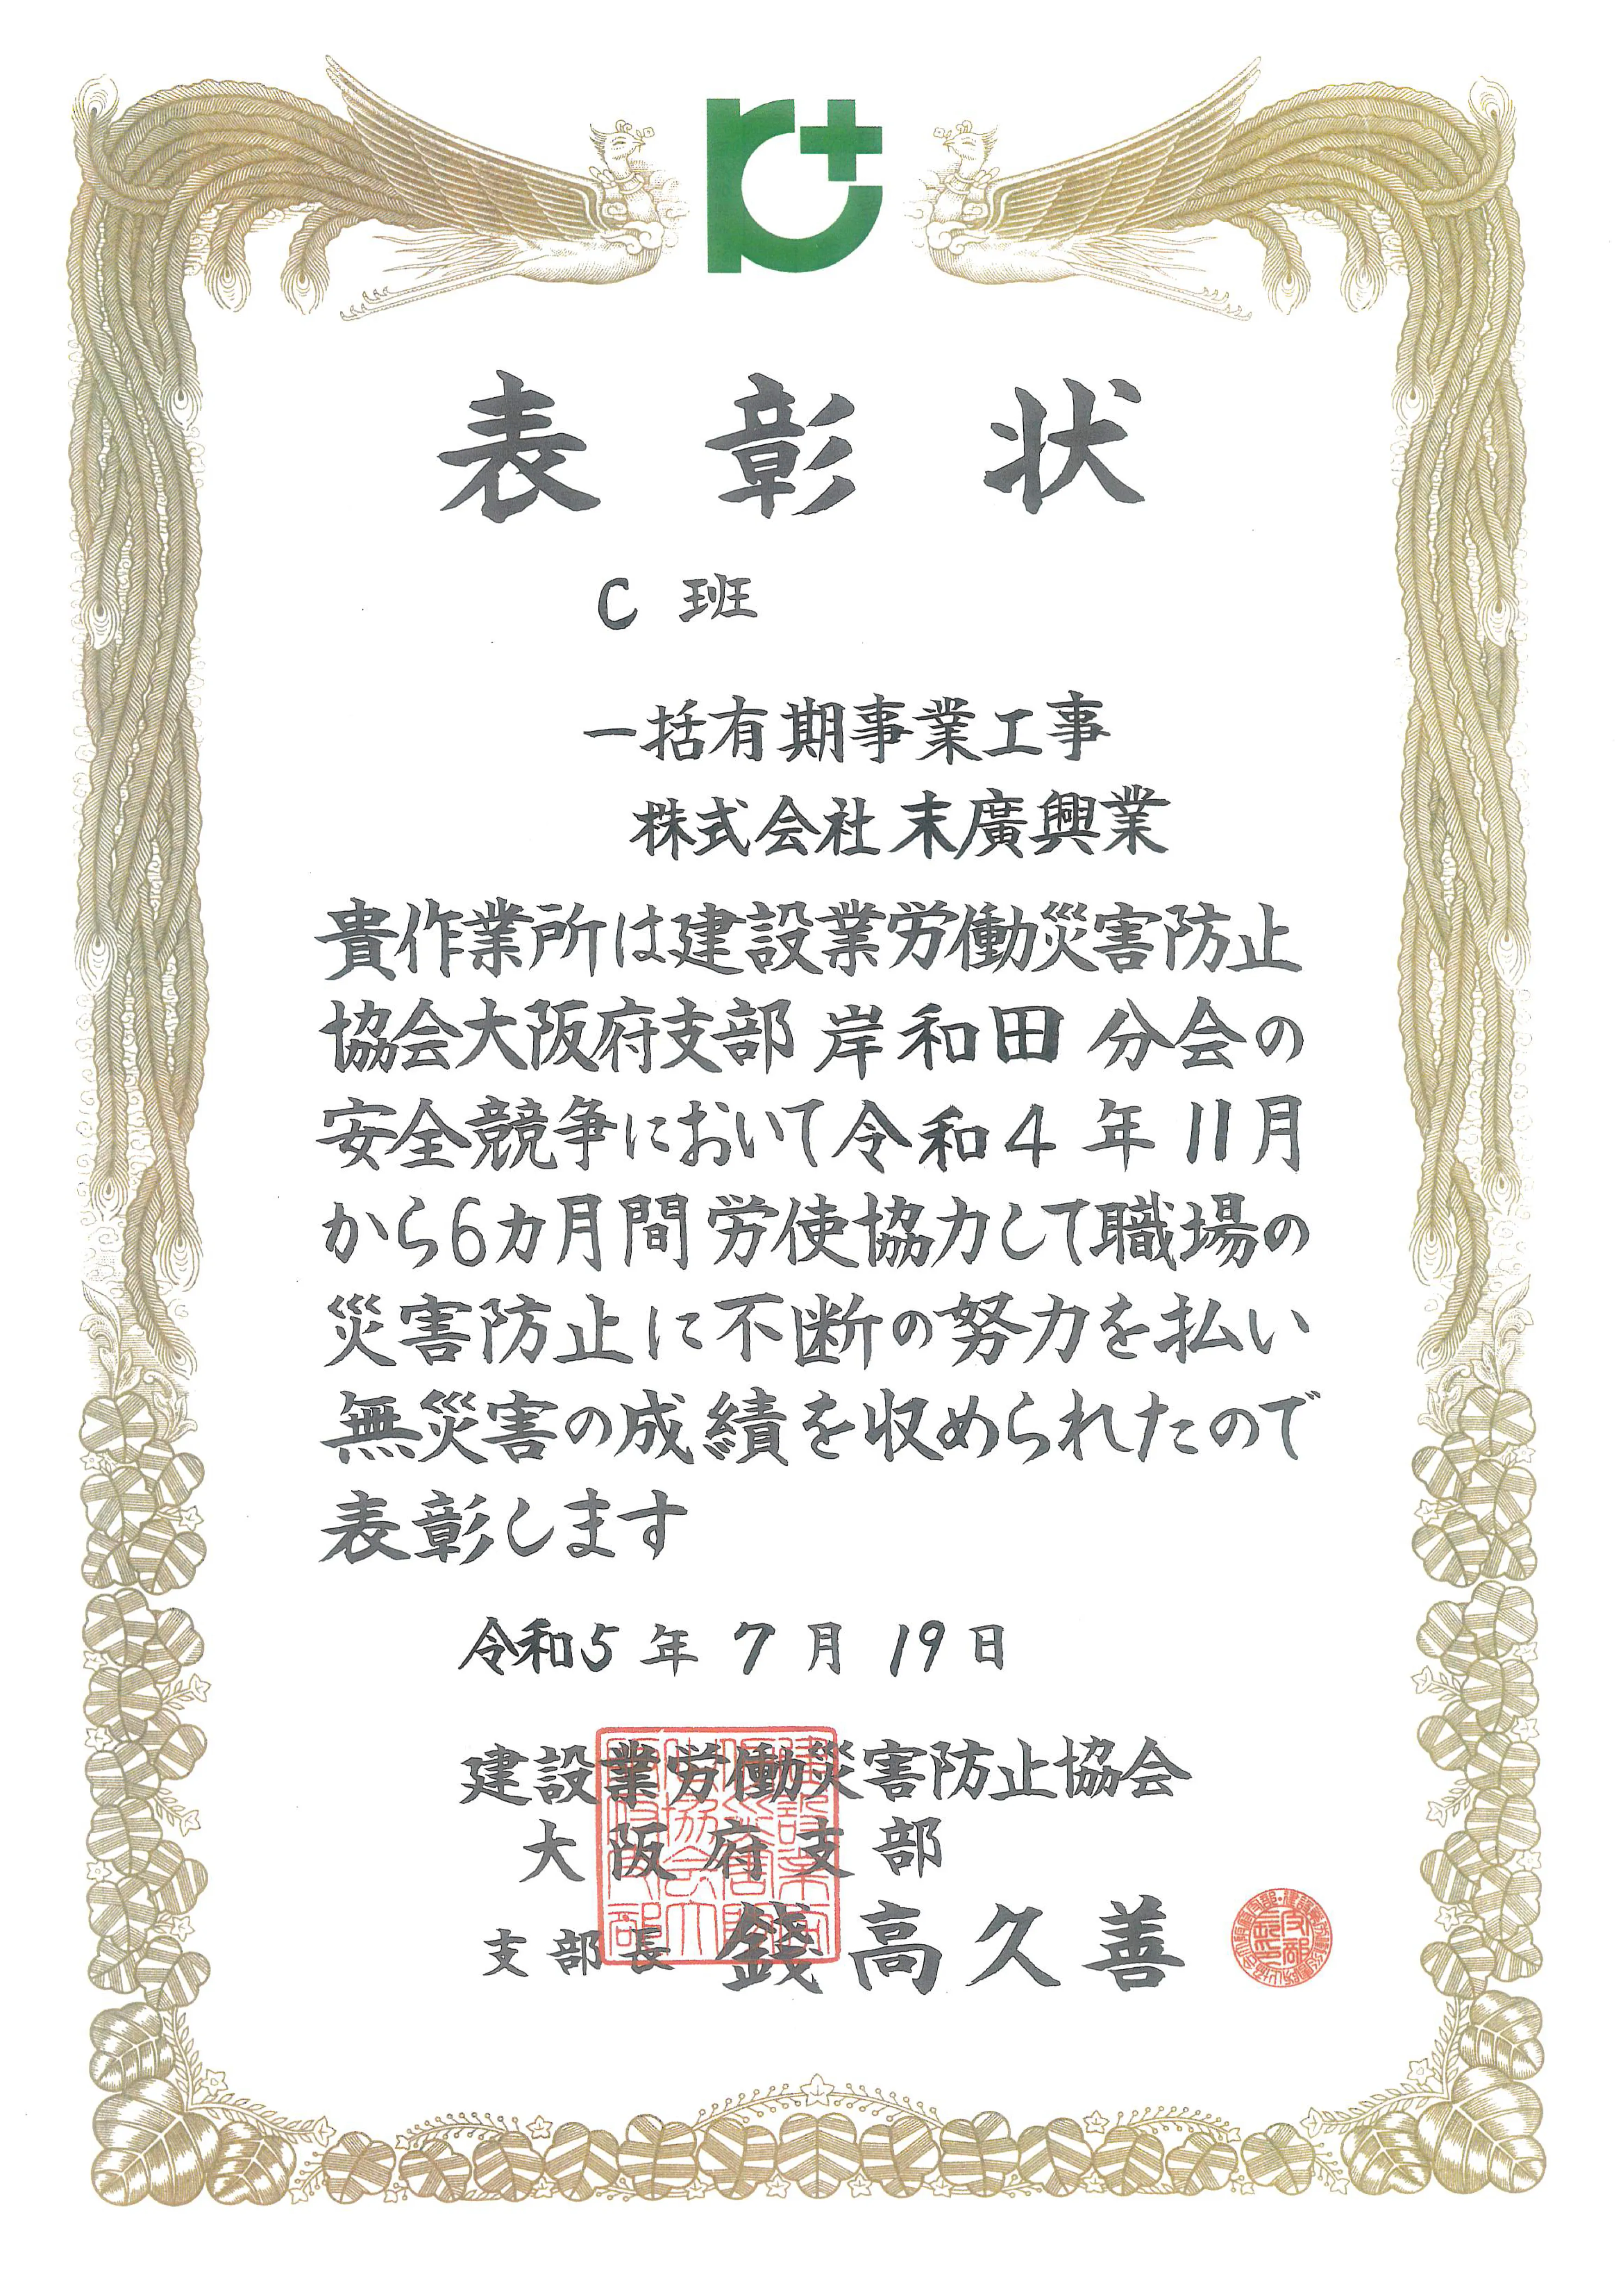 表彰状
C 班
一括有期事業工事
株式会社末廣興業
貴作業所は建設業労働災害防止
協会大阪府支部 岸和田 分会の
安全競争において令和4年11月
から6カ月間労使協力して職場の
災害防止に不断の努力を払い
無災害の成績を収められたので
表彰します
令和5年7月19日
建設業労働災害防止協会
大阪府支部
支部長 錢高久善